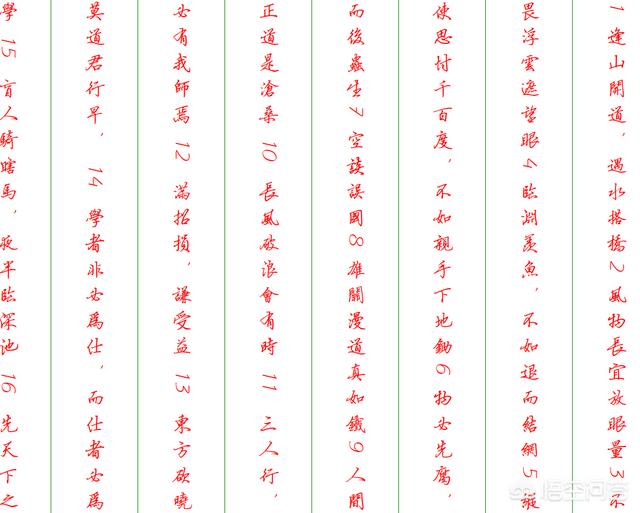 1逢山開道、遇水搭橋2風物長宜放眼量3不
畏浮雲遮望眼4臨淵羨魚、不如退而結網5縱
使思忖千百度、不如親手下地鋤6物必先腐、
而後蟲生7空談誤國8雄關漫道真如鐵9人間
正道是滄桑10長風破浪會有時11三人行、
必有我師焉12滿招損、謙受益13東方欲曉
莫道君行早、14學者非必為仕、而仕者必為
學15盲人騎瞎馬、夜半臨深池16先天下之
悟空问答